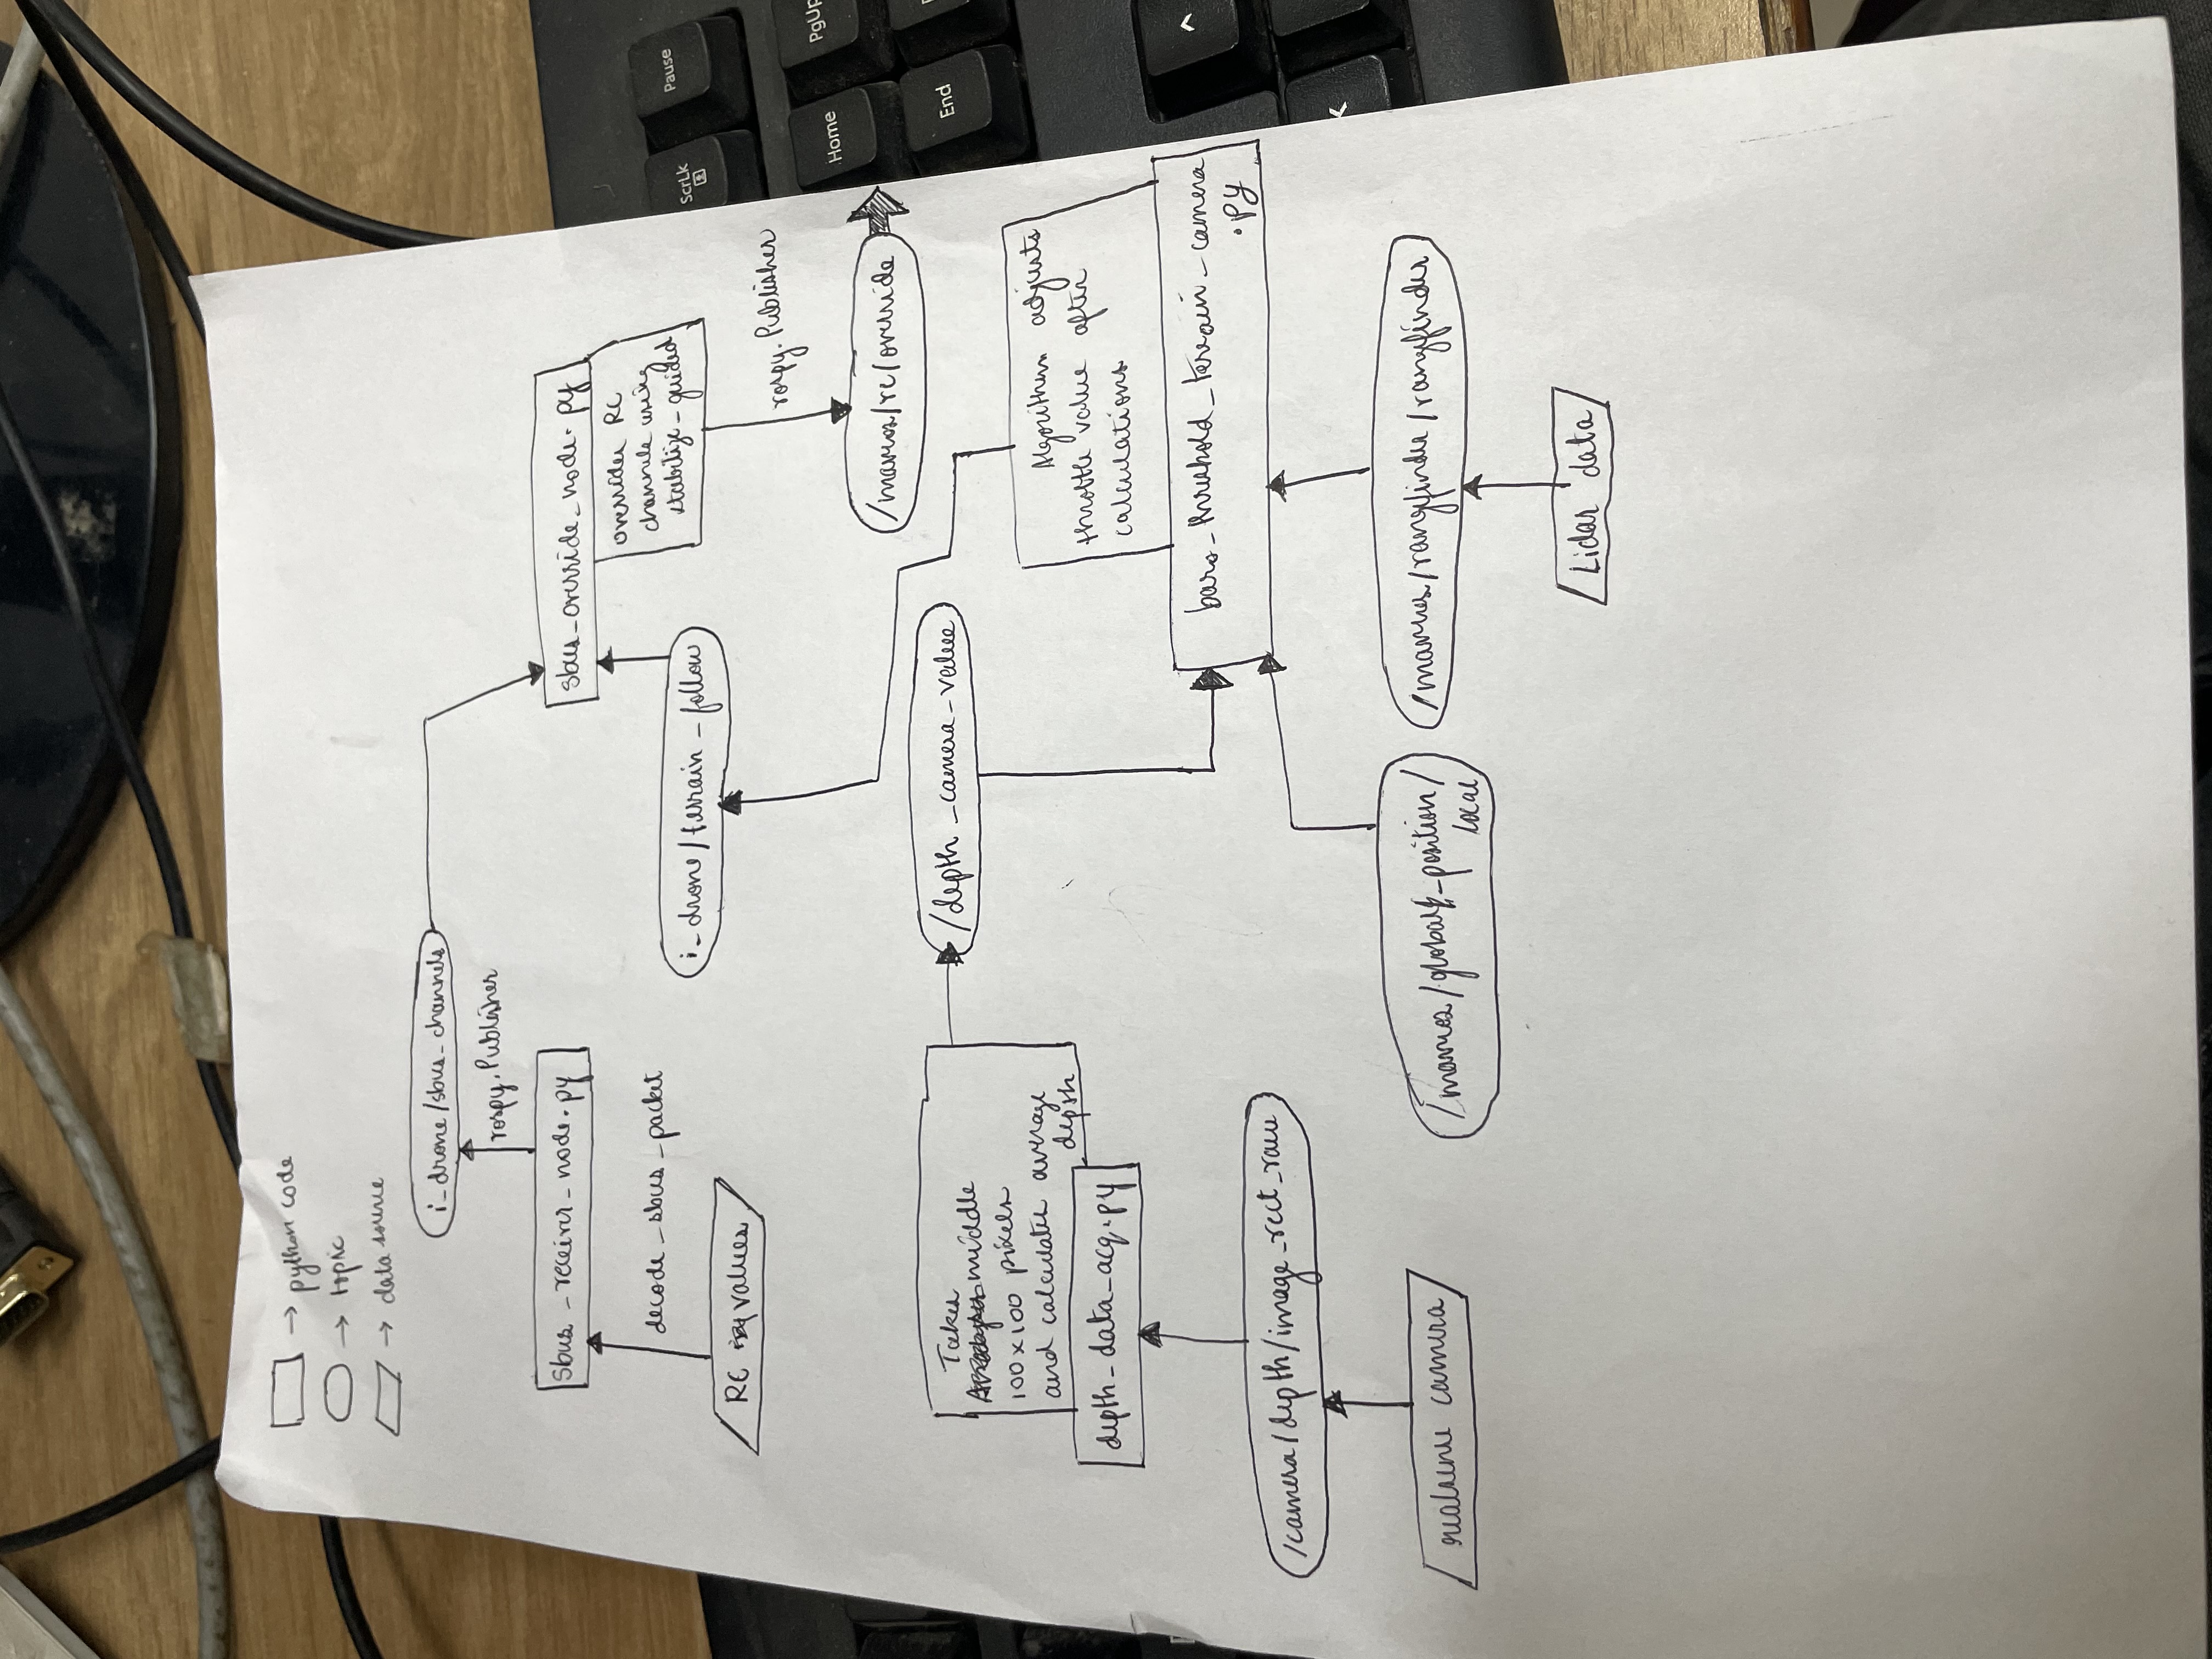 → python code
→ topic
→ data source
i_drone/sbus_channels
rospy.Publisher
sbus_receiver_node.py
decode_sbus_packet
RC values
sbus_override_node.py
overrides RC
channels using
stabilize_guided
i_drone/terrain_follow
rospy.Publisher
/mavros/rc/override
Takes
middle
100x100 pixels
and calculates average
depth
depth_data_acq.py
/depth_camera_value
Algorithm adjusts
throttle value after
calculations
baro_threshold_terrain_camera
.py
/camera/depth/image_rect_raw
realsense camera
/mavros/global_position/
local
/mavros/rangefinder/rangefinder
Lidar data
ScrLk
Pause
Home
PgUp
End